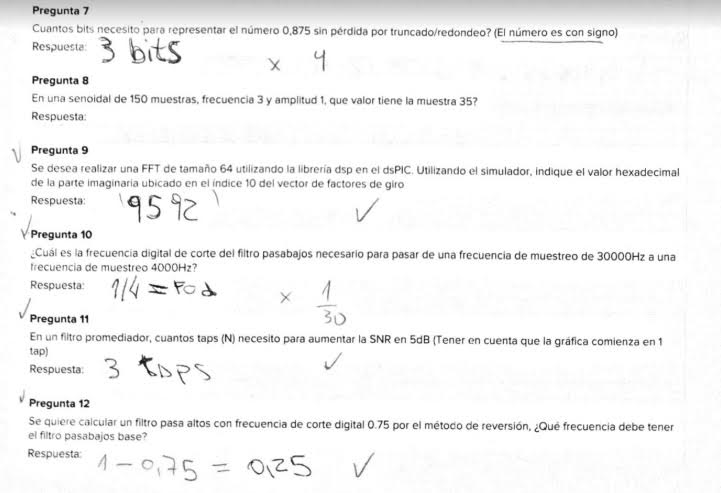 Pregunta 7
Cuantos bits necesito para representar el número 0,875 sin pérdida por truncado/redondeo? (El número es con signo)
Respuesta: 3 bits x 4
Pregunta 8
En una senoidal de 150 muestras, frecuencia 3 y amplitud 1, que valor tiene la muestra 35?
Respuesta:
√ Pregunta 9
Se desea realizar una FFT de tamaño 64 utilizando la librería dsp en el dsPIC. Utilizando el simulador, indique el valor hexadecimal
de la parte imaginaria ubicado en el índice 10 del vector de factores de giro
Respuesta: '9592' ✓
√ Pregunta 10
¿Cuál es la frecuencia digital de corte del filtro pasabajos necesario para pasar de una frecuencia de muestreo de 30000Hz a una
frecuencia de muestreo 4000Hz?
Respuesta: 1/4 = x 1/30
√ Pregunta 11
En un filtro promediador, cuantos taps (N) necesito para aumentar la SNR en 5dB (Tener en cuenta que la gráfica comienza en 1
tap)
Respuesta: 3 taps ✓
√ Pregunta 12
Se quiere calcular un filtro pasa altos con frecuencia de corte digital 0.75 por el método de reversión, ¿Qué frecuencia debe tener
el filtro pasabajos base?
Respuesta: 1-0,75 = 0,25 ✓